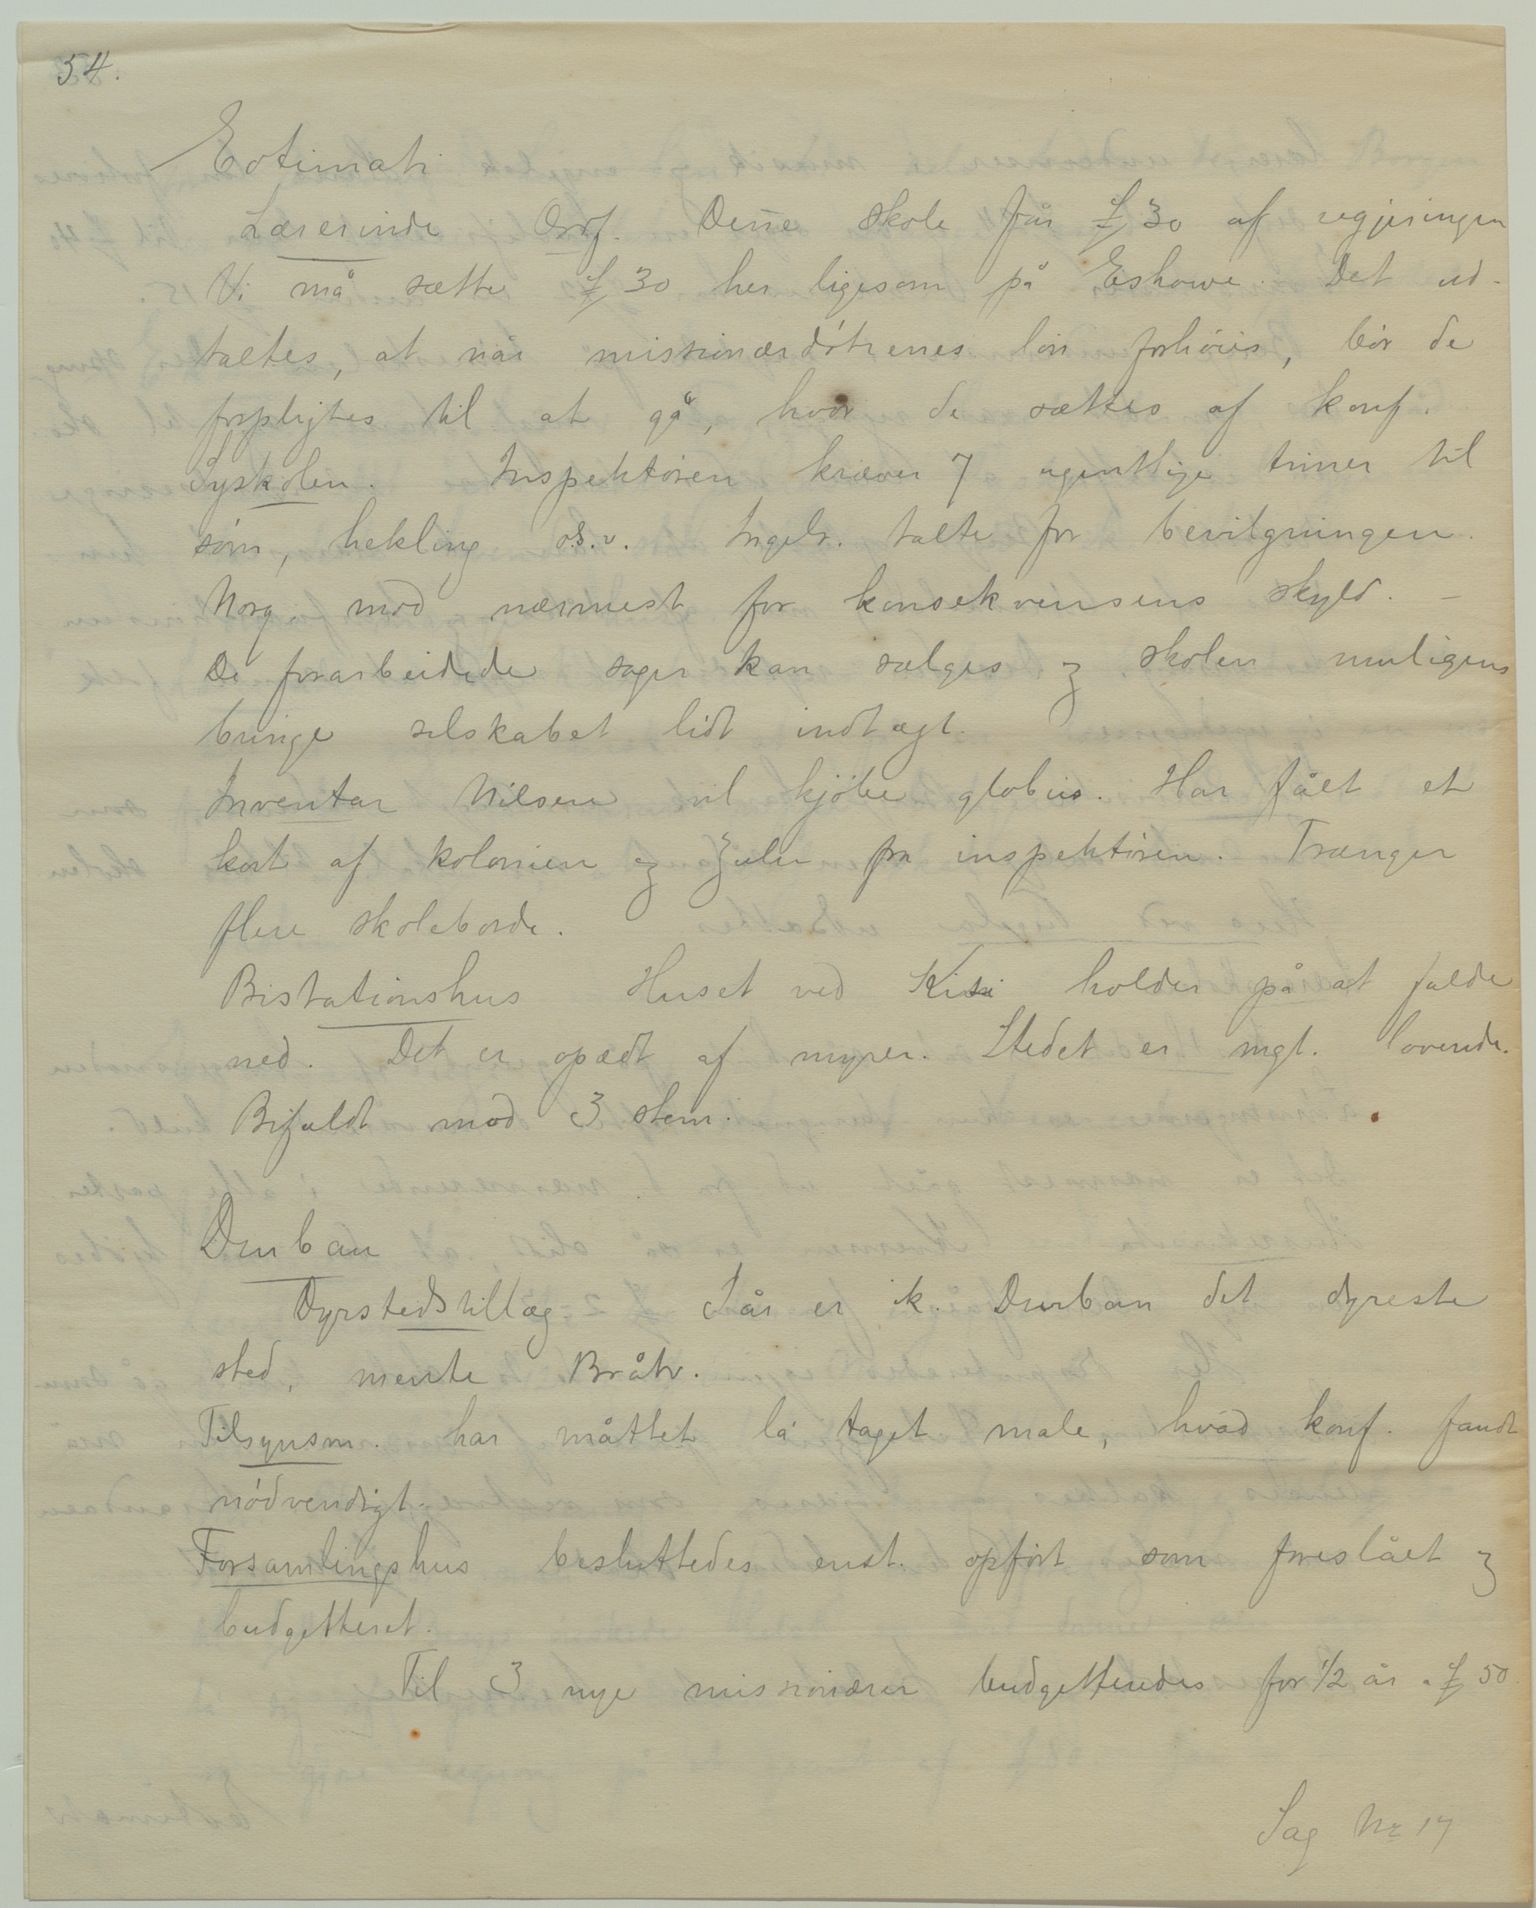 54.
Eotimati
Lærerinde Ordf. Denne skole får £ 30 af regjeringen
Vi må sætte £ 30 her ligesom på Eshowe. Det ud-
taltes, at når missionærdøtrenes løn forhøies, bør de
forpligtes til at gå, hvor de sættes af konf.
Syskolen. Inspektøren kræver 7 ugentlige timer til
søm, hekling o.s.v. Ingebr. talte for bevilgningen.
Norg. mod nærmest for konsekvensens skyld. –
De forarbeidede sager kan sælges og skolen muligens
bringe selskabet lidt indtægt.
Inventar Nilsen vil kjøbe globus. Har fået et
kart af kolonien og Zulu fra inspektøren. Trænger
flere skoleborde.
Bistationshus Huset ved Kisi holder på at falde
ned. Det er opædt af myrer. Stedet er mgt. lovende.
Bifaldt mod 3 stem.
Durban
Dyrstedstillæg. I år er ik. Durban det dyreste
sted, mente Bråtv.
Tilsynsm. har måttet la taget male, hvad konf. fandt
nødvendigt.
Forsamlingshus besluttedes enst. opført som foreslået og
budgetteret.
Til 3 nye missionærer budgetteredes for 1/2 år a £ 50.
Sag Nr 17